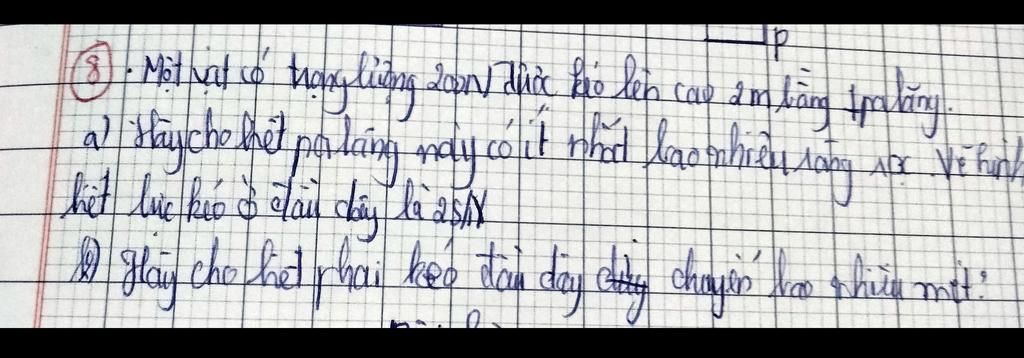 P
8. Một vật có trọng lượng 200N được kéo lên cao 2m bằng 1 palăng.
a) Hãy cho biết palăng này có ít nhất bao nhiêu ròng rọc Vẽ hình
biết lực kéo ở đầu dây là 25N
b) Hãy cho biết phải kéo đầu dây chuyển bao nhiêu mét?